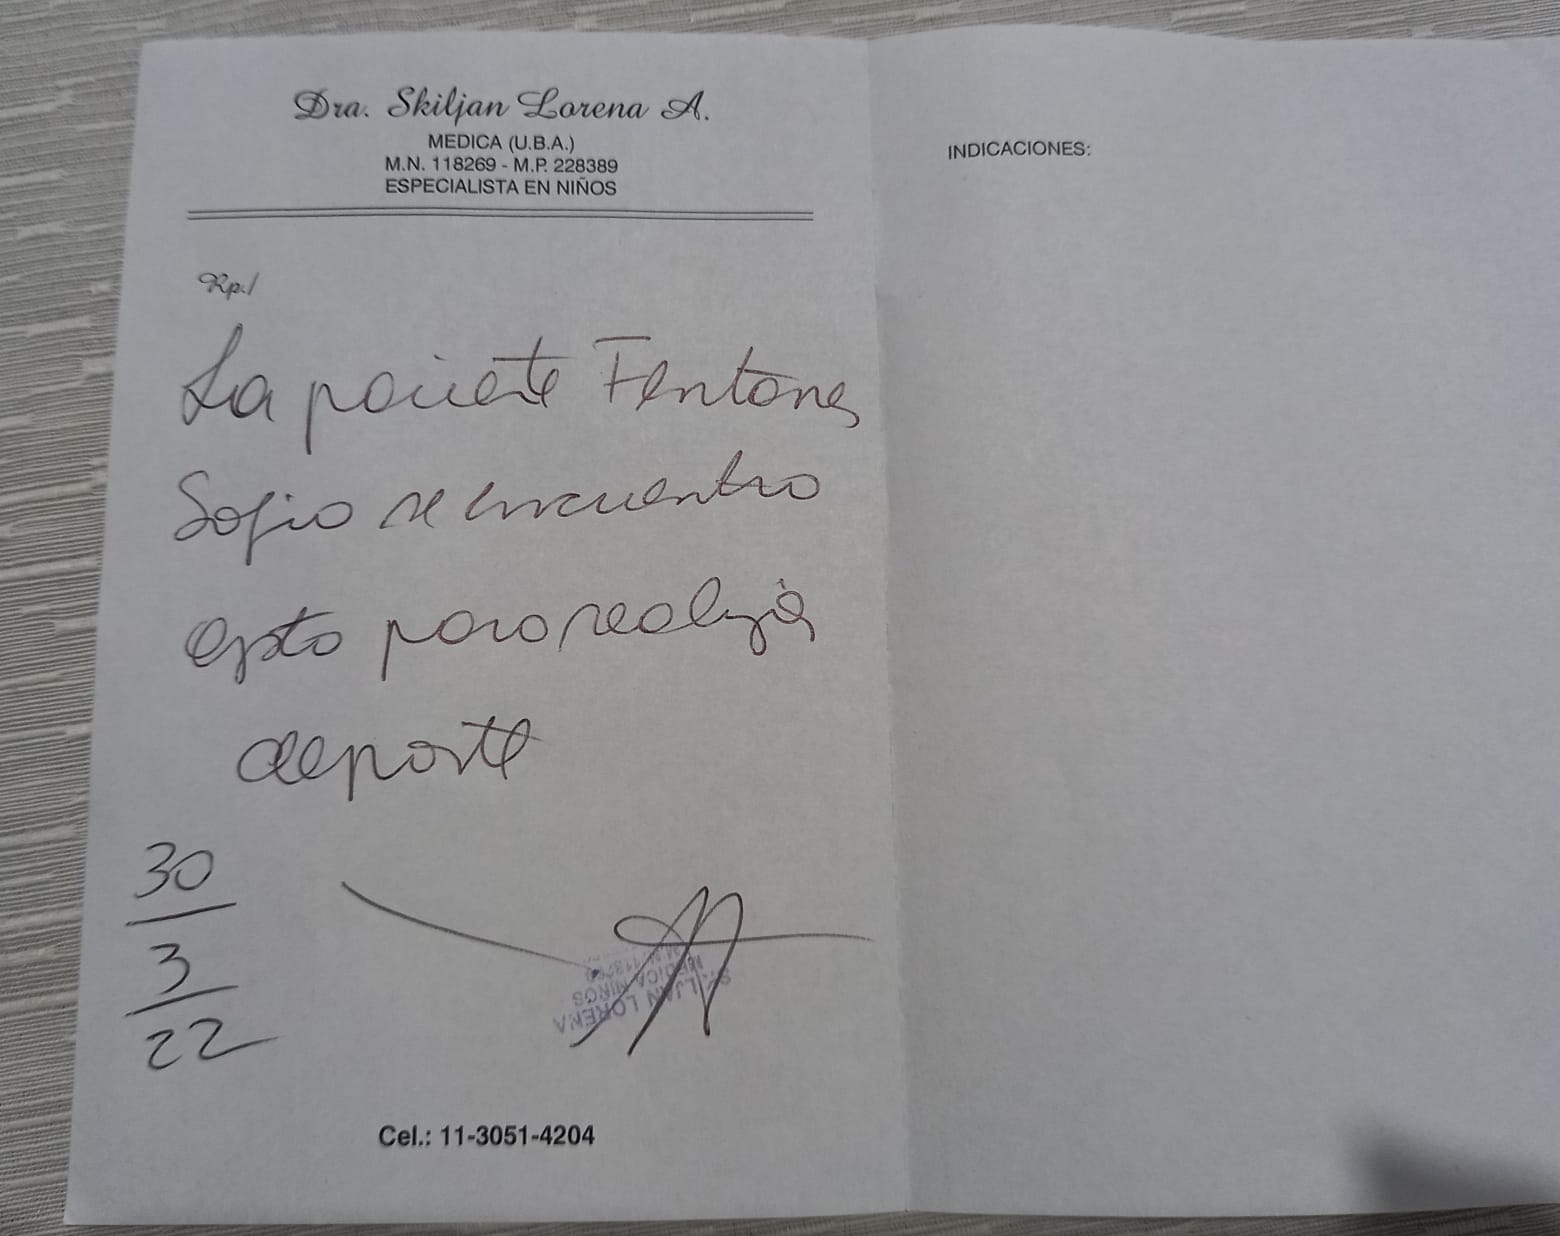 Dra. Skiljan Lorena A.
MEDICA (U.B.A.)
M.N. 118269 - M.P. 228389
ESPECIALISTA EN NIÑOS
Rp./
La paciente Fentanes
Sofia se encuentra
apta para realizar
deporte
30
3
22
SKILJAN LORENA
MEDICA NIÑOS
Cel.: 11-3051-4204
INDICACIONES: